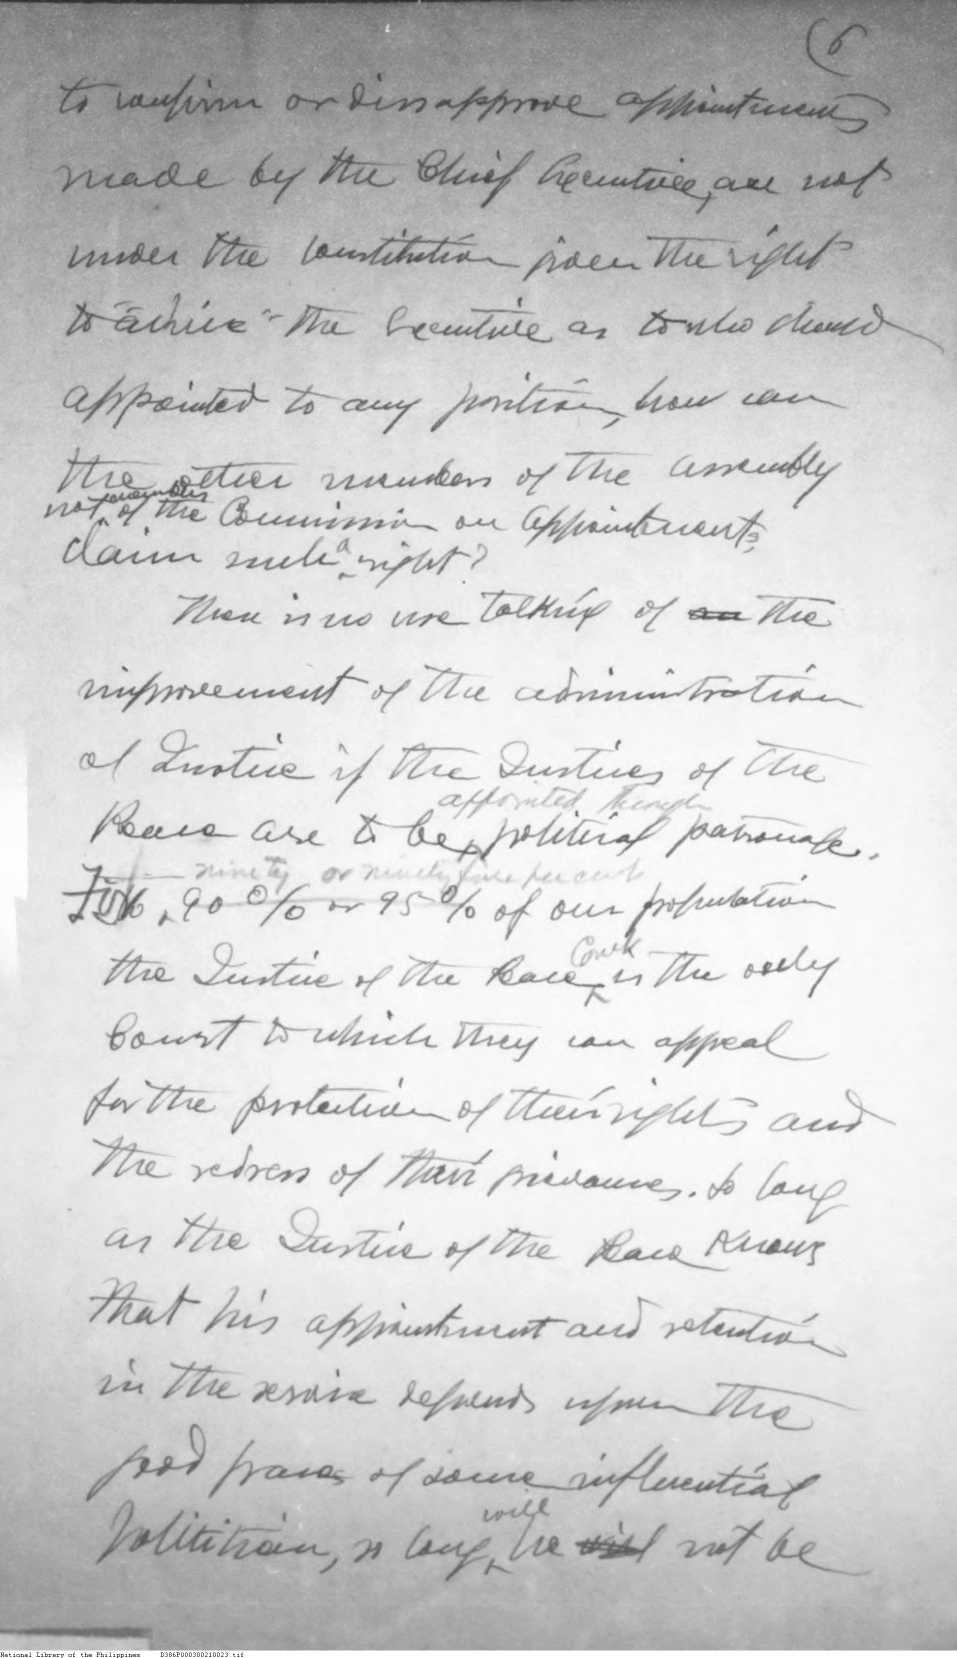 (6
to confirm or dissapprove appointments
made by the Chief Executive, are not
under the Constitution given the right
to "advice" the Executive as to who should
appointed to any position, how can
the other members of the assembly
not members of the Commission on Appointments,
claim such a right?
There is no use talking of an the
improvement of the administration
of Justice if the Justices of the
appointed through
Peace are to be political patronage.
ninety or ninety five per cent
For 90 % or 95 % of our population
Court
the Justice of the Peace is the only
Court to which they can appeal
for the protection of their rights and
the redress of their grievances. So long
as the Justice of the Peace Knows
that his appointment and retention
in the service depends upon the
good graces of some influential
will
Polititian, so long he will not be
National Library of the Philippines D386P000300210023.tif